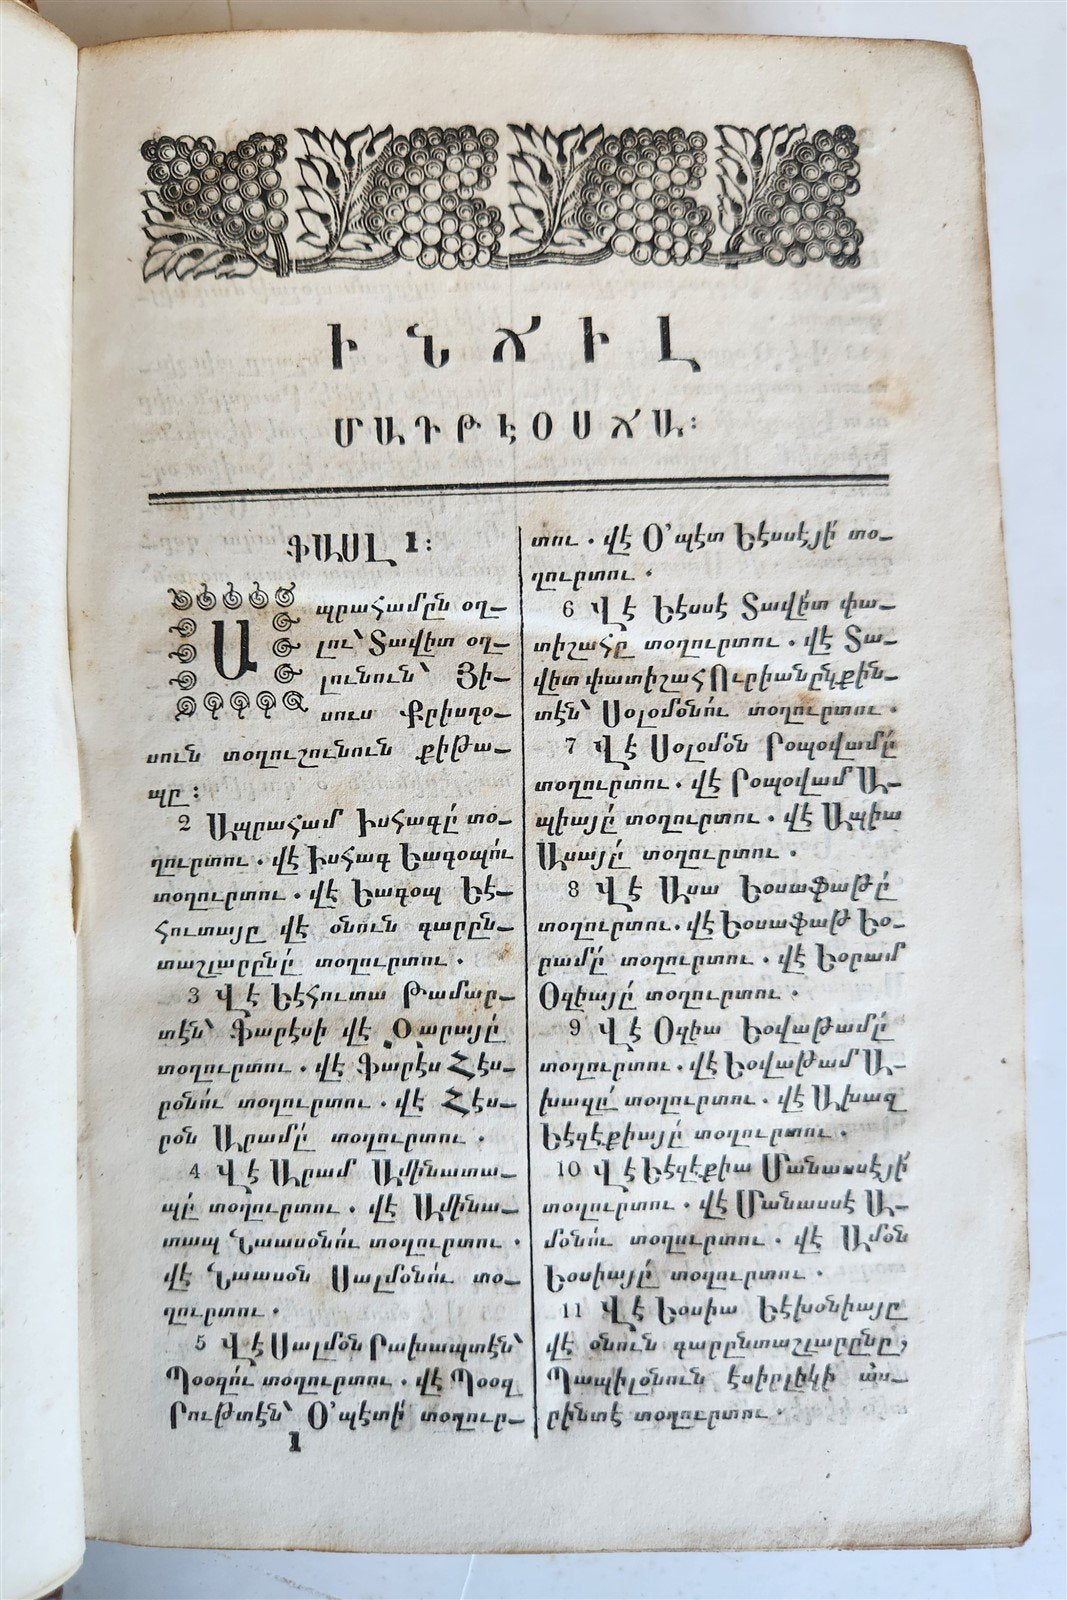 ԻՆՃԻԼ
ՄԱԴԹԷՕՍՃԱ։
ՖԱՍԼ 1։
Ապրահամըն օղ–
լու՝ Տավիտ օղ–
լունուն՝ Յի–
սուս Քրիսդօ–
սուն տօղուշունուն քիթա–
պը։
2 Ապրահամ Իսհագը՛ տօ–
ղուրտու. վէ Իսհագ Եագօպու՛
տօղուրտու. վէ Եագօպ Եէ–
հուտայը վէ օնուն գարըն–
տաշլարընը՛ տօղուրտու.
3 Վէ Եէհուտա Թամար–
տէն՝ Ֆարէսի վէ Օարայը՛
տօղուրտու. վէ Ֆարէս Հէս–
րօնու՛ տօղուրտու. վէ Հէս–
րօն Արամը՛ տօղուրտու.
4 Վէ Արամ Ամինատա–
պը՛ տօղուրտու. վէ Ամինա–
տապ Նաասօնու՛ տօղուրտու.
վէ Նաասօն Սալմօնու՛ տօ–
ղուրտու.
5 Վէ Սալմօն Րախապտէն՝
Պօօզու՛ տօղուրտու. վէ Պօօզ
Րութտէն՝ Օ՚պէտի՛ տօղուր–
1
տու. վէ Օ՚պէտ Եէսսէյի՛ տօ–
ղուրտու.
6 Վէ Եէսսէ Տավի՛տ փա–
տիշահը տօղուրտու. վէ Տա–
վիտ փատիշահ Ուրիանընկքին–
տէն՝ Սօլօմօնու՛ տօղուրտու.
7 Վէ Սօլօմօն Րօպօվամը՛
տօղուրտու. վէ Րօպօվամ Ա–
պիայը՛ տօղուրտու. վէ Ապիա
Ասայը՛ տօղուրտու.
8 Վէ Ասա Եօսաֆաթը՛
տօղուրտու. վէ Եօսաֆաթ Եօ–
րամը՛ տօղուրտու. վէ Եօրամ
Օզիայը՛ տօղուրտու.
9 Վէ Օզիա Եօվաթամը՛
տօղուրտու. վէ Եօվաթամ Ա–
խազը՛ տօղուրտու. վէ Ախազ
Եէզէքիայը՛ տօղուրտու.
10 Վէ Եէզէքիա Մանասսէյի՛
տօղուրտու. վէ Մանասսէ Ա–
մօնու՛ տօղուրտու. վէ Ամօն
Եօսիայը՛ տօղուրտու.
11 Վէ Եօսիա Եէխօնիայը
վէ օնուն գարընտաշլարընը,
Պապիլօնուն էսիրլիկի ա՛ս–
րինտէ տօղուրտու.